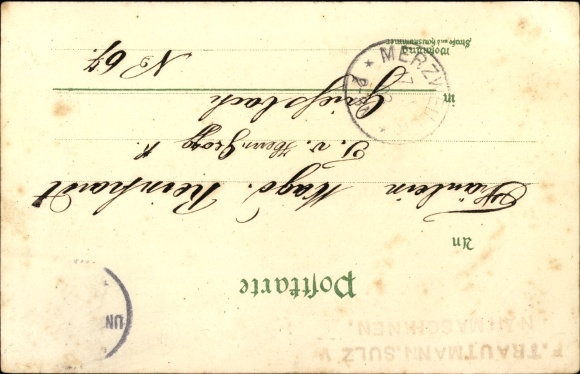 F. TRAUTMANN. SULZ
NÄHMASCHINEN.
Postkarte
An
Fräulein Magd. Reinhardt
T. v. Herrn Georg R.
in Griesbach
MERZWEIL
No 67.
Wohnung
Straße und Hausnummer
UN